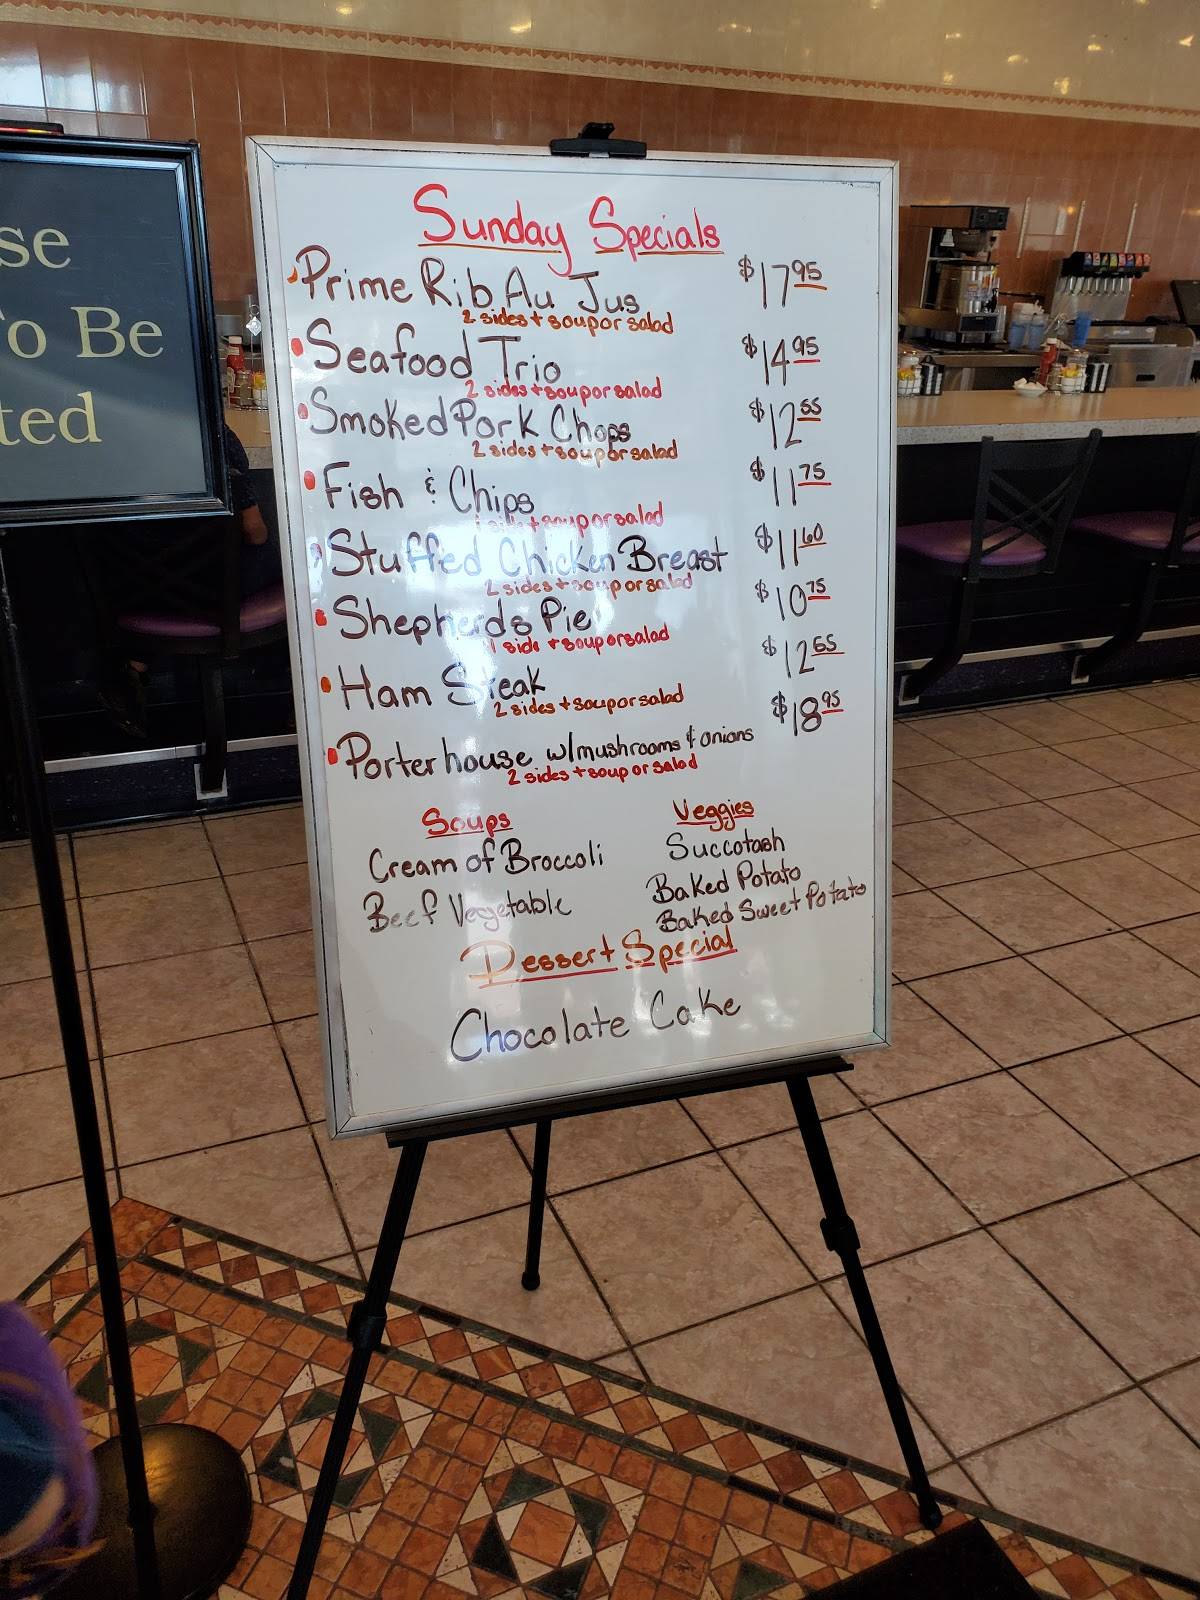 se
To Be
ted
Sunday Specials
Prime Rib Au Jus $17.95
2 sides + soup or salad
Seafood Trio $14.95
2 sides + soup or salad
Smoked Pork Chops $12.55
2 sides + soup or salad
Fish & Chips $11.75
1 side + soup or salad
Stuffed Chicken Breast $11.60
2 sides + soup or salad
Shepherds Pie $10.75
1 side + soup or salad
Ham Steak $12.65
2 sides + soup or salad
Porterhouse w/mushrooms & onions $18.95
2 sides + soup or salad
Soups
Cream of Broccoli
Beef Vegetable
Veggies
Succotash
Baked Potato
Baked Sweet Potato
Dessert Special
Chocolate Cake